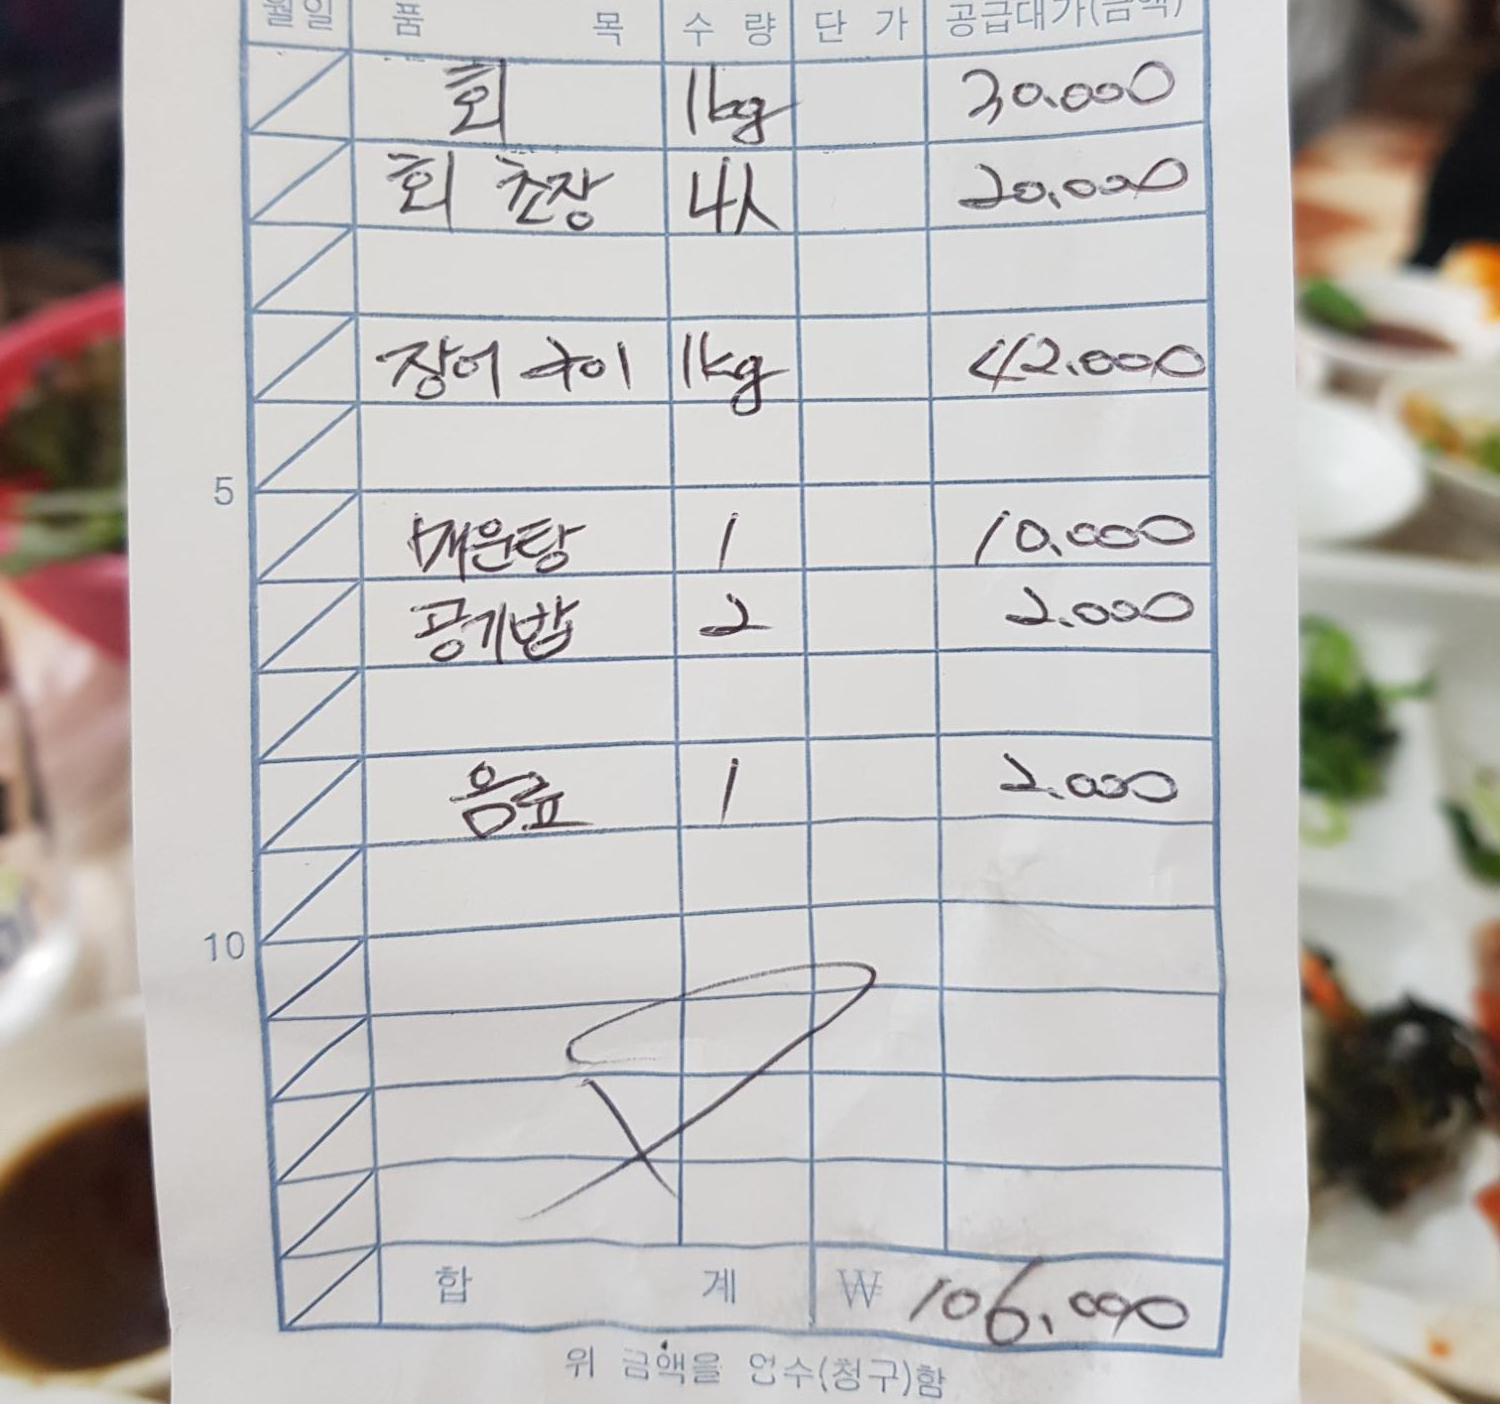 월일 품 목 수 량 단 가 공급대가(금액)
회 1kg 30.000
회 초장 4人 20.000
장어 구이 1kg 42.000
5
매운탕 1 10.000
공기밥 2 2.000
음료 1 2.000
10
합 계 ₩ 106,000
위 금액을 영수(청구)함